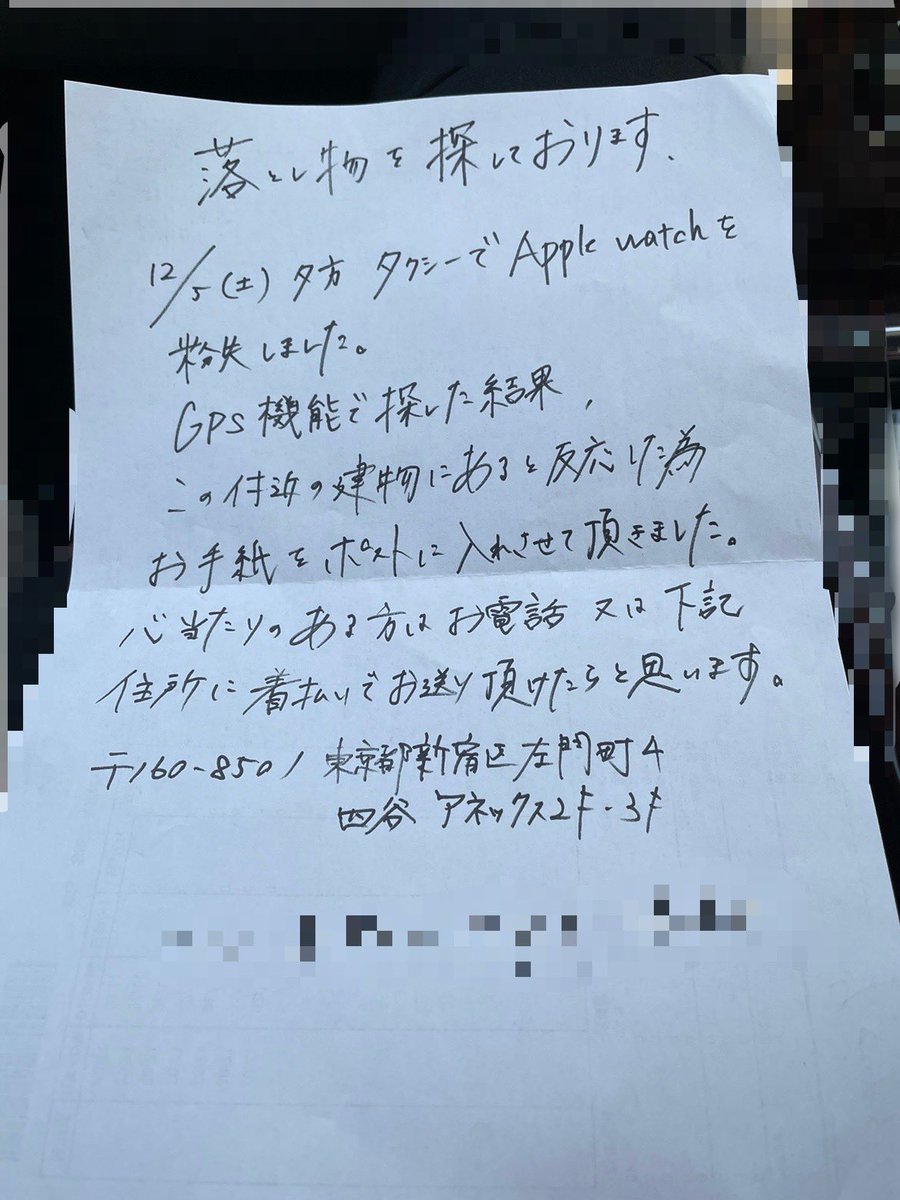 落とし物を探しております.
12/5(土) 夕方 タクシーで Apple watchを
紛失しました。
GPS機能で探した結果,
この付近の建物にあると反応した為
お手紙をポストに入れさせて頂きました。
心当たりのある方はお電話 又は 下記
住所に着払いでお送り頂けたらと思います。
〒160-8501 東京都新宿区左門町4
四谷 アネックス2F-3F